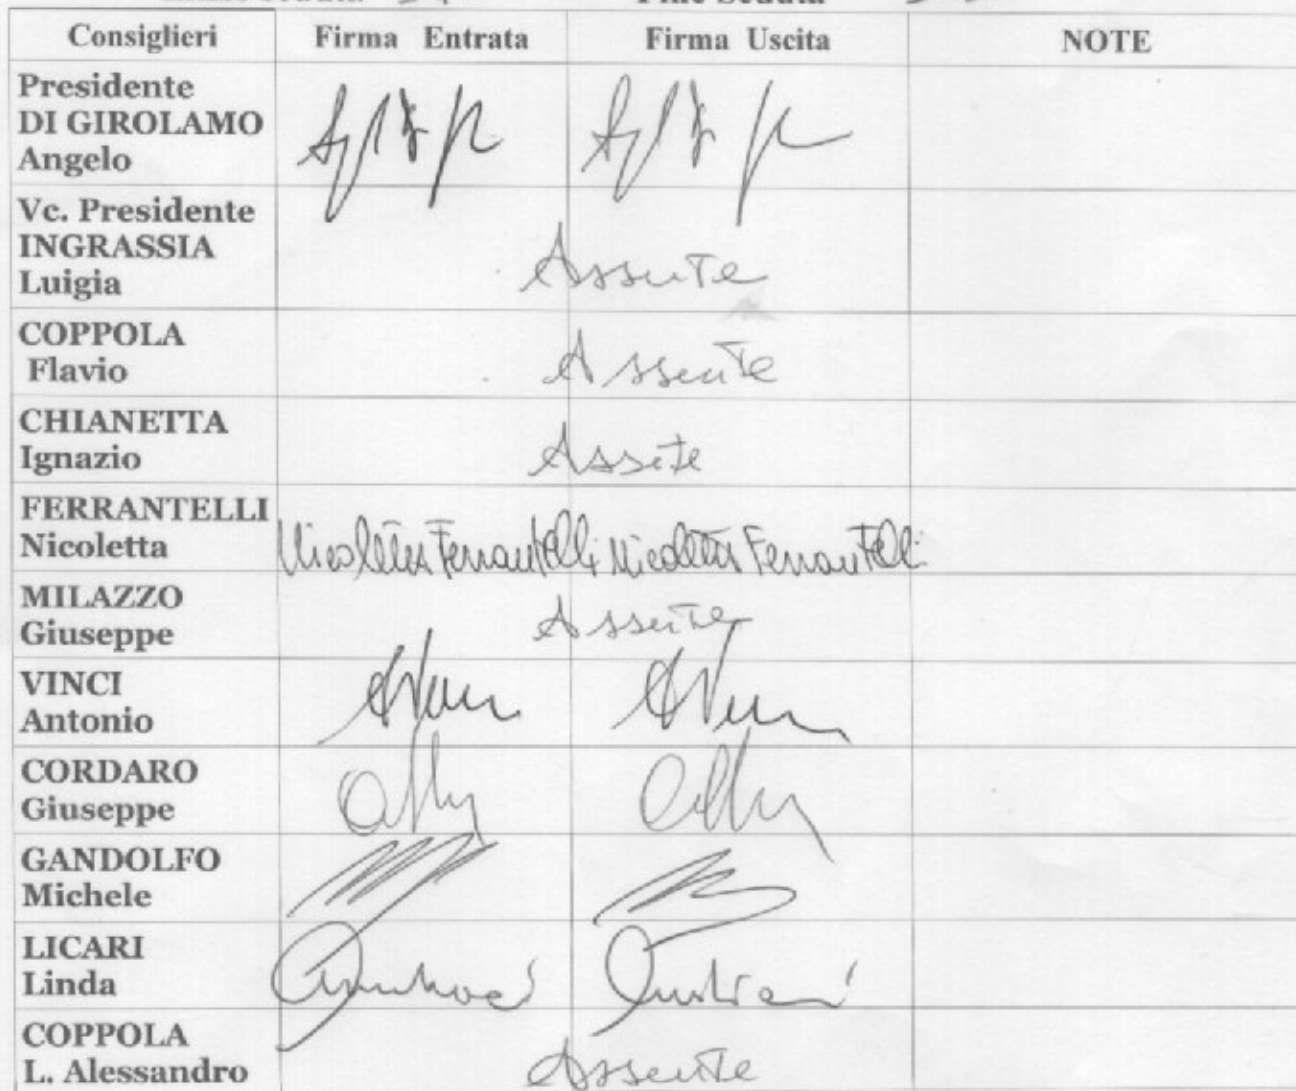 Consiglieri Firma Entrata Firma Uscita NOTE
Presidente
DI GIROLAMO
Angelo
Vc. Presidente
INGRASSIA
Luigia
Assente
COPPOLA
Flavio
Assente
CHIANETTA
Ignazio
Assete
FERRANTELLI
Nicoletta
Nicoletta Ferrantelli Nicoletta Ferrantelli
MILAZZO
Giuseppe
Assente
VINCI
Antonio
CORDARO
Giuseppe
GANDOLFO
Michele
LICARI
Linda
COPPOLA
L. Alessandro
Assente